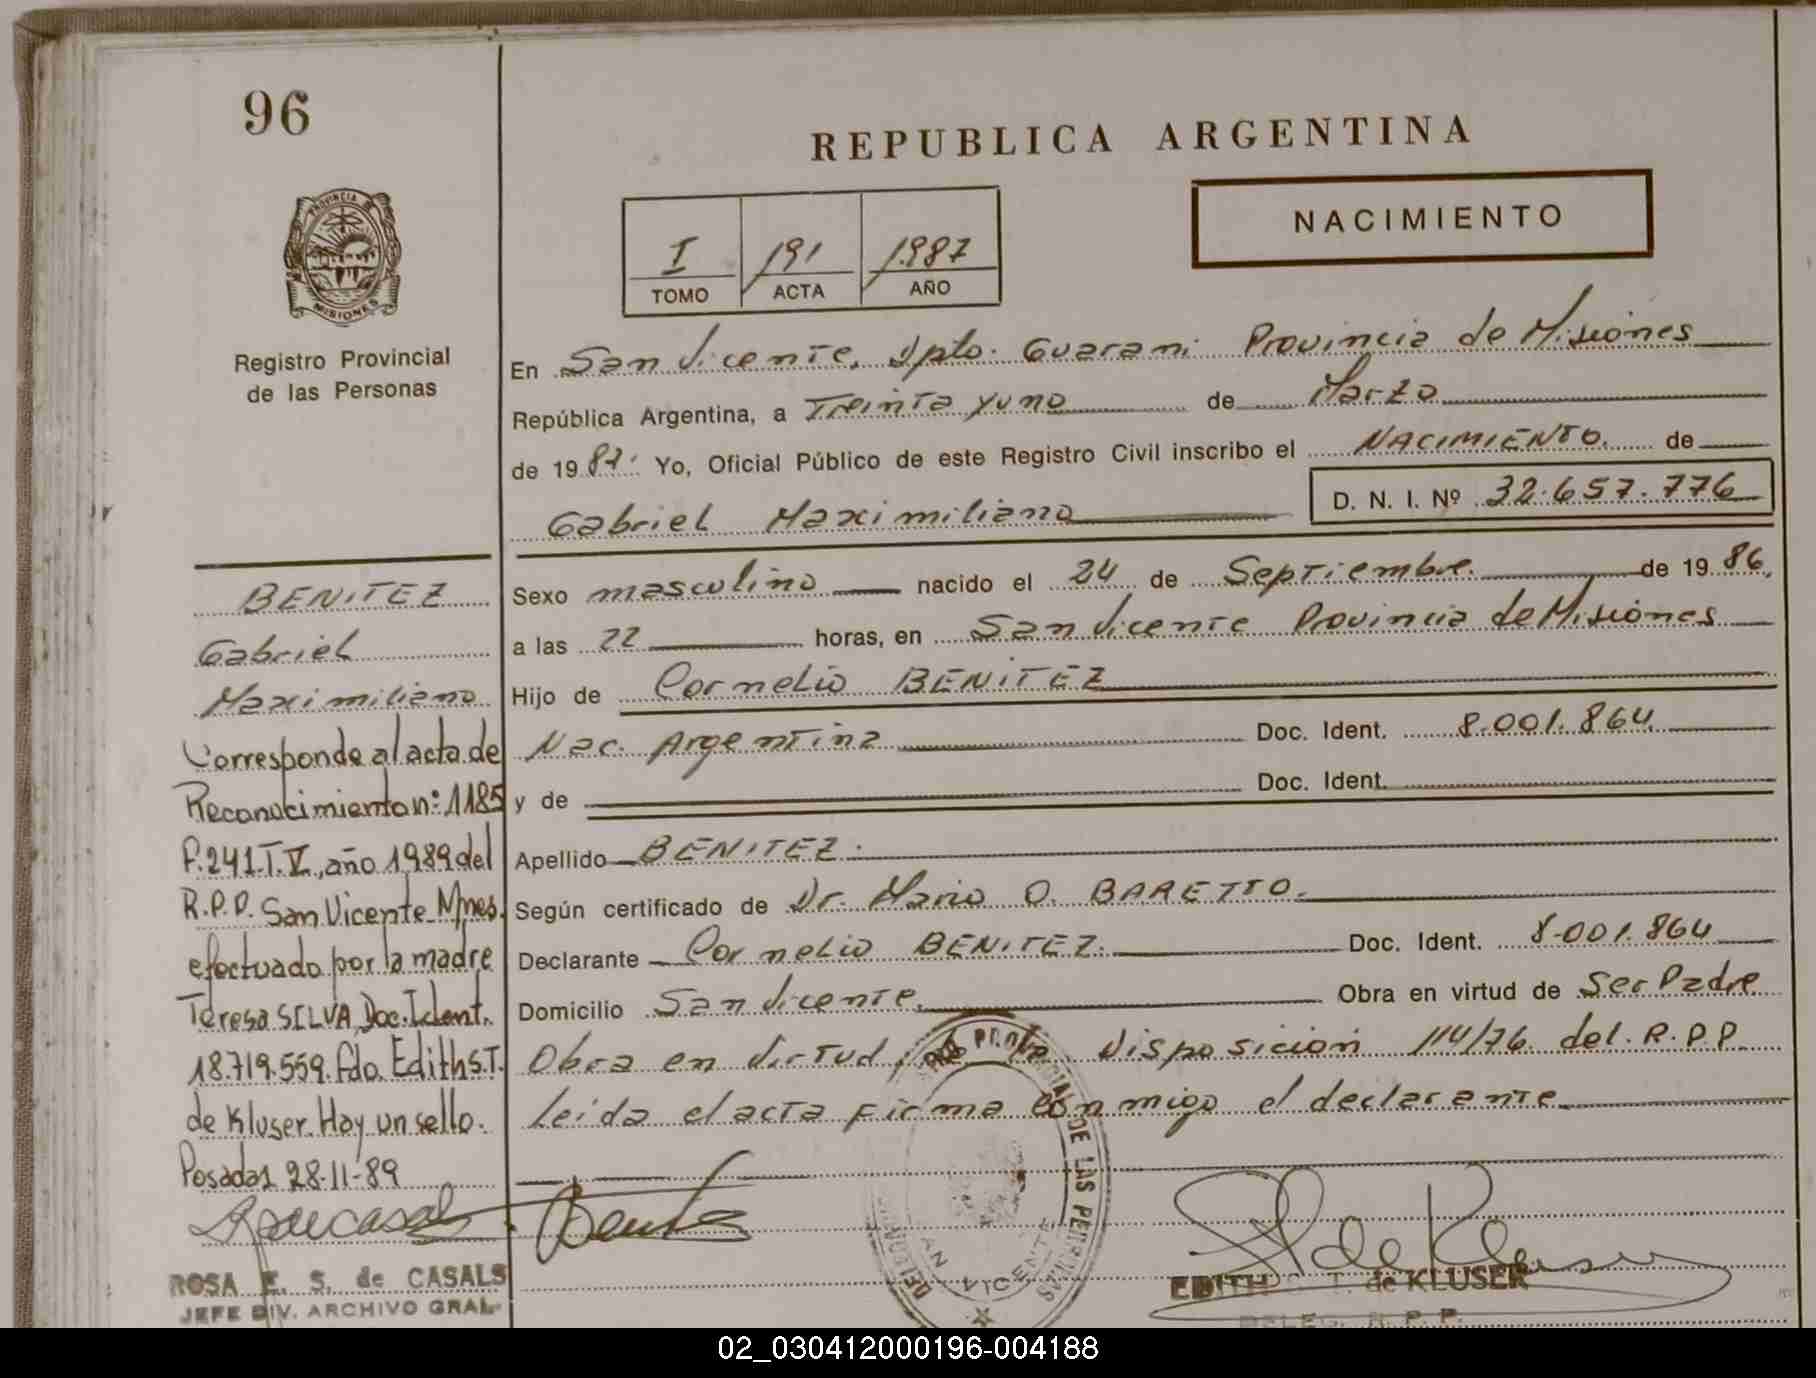 96
REPUBLICA ARGENTINA
PROVINCIA DE
MISIONES
Registro Provincial
de las Personas
I 191 1.987
TOMO ACTA AÑO
NACIMIENTO
En San Vicente, Dpto. Guarani Provincia de Misiones
República Argentina, a Treinta y uno de Marzo
de 1987. Yo, Oficial Público de este Registro Civil inscribo el NACIMIENTO. de
Gabriel Maximiliano D. N. I. Nº 32.657.776
Sexo masculino nacido el 24 de Septiembre. de 1986,
a las 22 horas, en San Vicente Provincia de Misiones
Hijo de Cornelio BENITEZ
Nac. Argentina Doc. Ident. 8.001.864.
y de Doc. Ident.
Apellido BENITEZ.
Según certificado de Dr. Mario O. BARETTO.
Declarante Cornelio BENITEZ. Doc. Ident. 8.001.864
Domicilio San Vicente. Obra en virtud de Ser Padre
Obra en virtud de la Disposicion 114/76. del. R.P.P.
leida el acta firma conmigo el declarante
BENITEZ
Gabriel
Maximiliano
Corresponde al acta de
Reconocimiento n: 1185
F.241.T.V., año 1989 del
R.P.P. San Vicente Mnes.
efectuado por la madre
Teresa SILVA, Doc. Ident.
18.719.559. Fdo. Edith S.T.
de Kluser. Hay un sello.
Posadas 28-11-89
ROSA E. S. de CASALS
JEFE DIV. ARCHIVO GRAL.
DE LAS PERSONAS
SAN VICENTE
EDITH T. de KLUSER
DELEG. R. P. P.
02_030412000196-004188